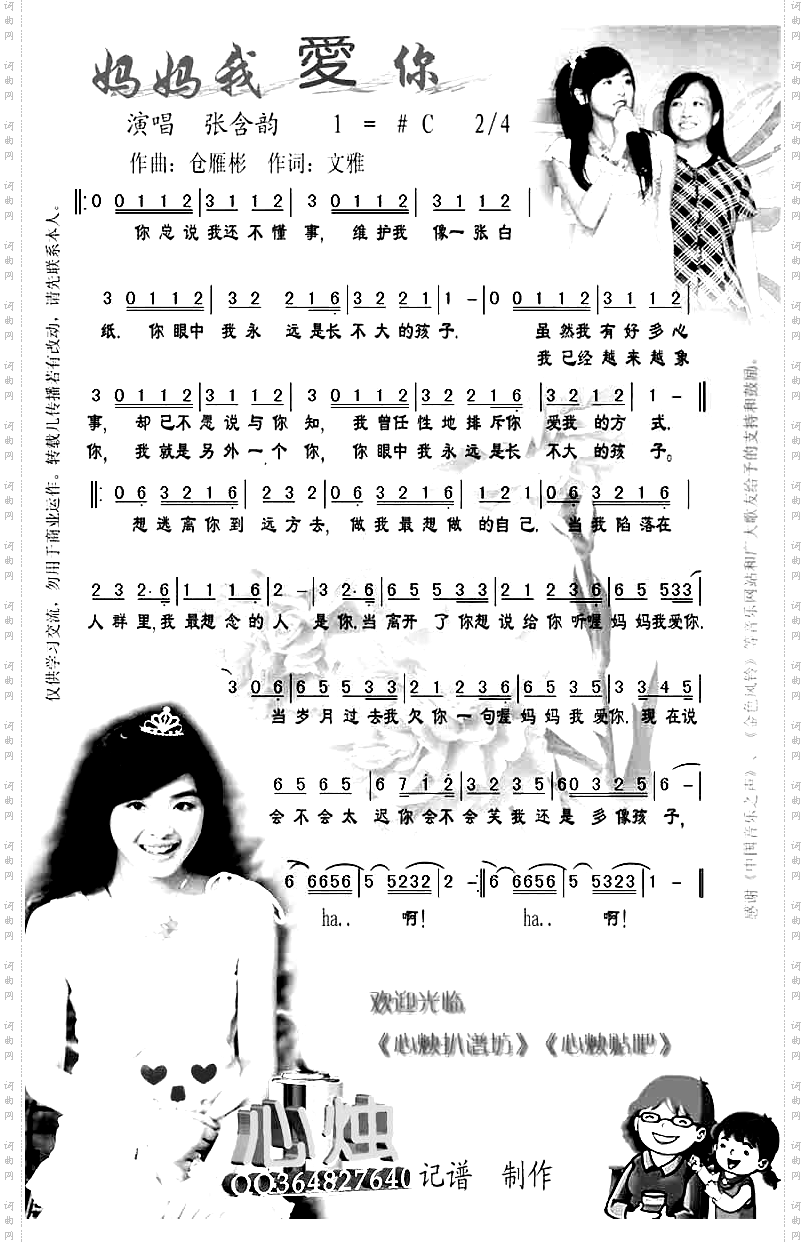 妈妈我愛你
演唱 张含韵 1 = # C 2/4
作曲: 仓雁彬 作词: 文雅
‖: 0 0 1 1 2 | 3 1 1 2 | 3 0 1 1 2 | 3 1 1 2 |
你总说我还不懂事, 维护我 像一张白
3 0 1 1 2 | 3 2 2 1 6 | 3 2 2 1 | 1 - | 0 0 1 1 2 | 3 1 1 2 |
纸. 你眼中 我永 远是长不大的孩子. 虽然我有好多心
我已经越来越象
3 0 1 1 2 | 3 1 1 2 | 3 0 1 1 2 | 3 2 2 2 1 6 | 3 0 2 1 2 | 1 - ‖
事, 却已不愿说与你 知, 我曾任性地排斥你 爱我的方 式.
你, 我就是另外一个 你, 你眼中我永远是长 不大的孩 子。
‖: 0 6 3 2 1 6 | 2 3 2 | 0 6 3 2 1 6 | 1 2 2 | 0 6 3 2 1 6 |
想逃离你到 远方去, 做我最想做 的自己. 当我陷落在
2 3 2· 6 | 1 1 1 0 6 | 2 - | 3 2· 6 | 6 5 5 3 3 | 2 1 2 3 6 | 6 5 5 33 |
人群里,我最想念的人 是你.当离开 了你想说给你听喔妈妈我爱你.
3 0 6 | 6 5 6 5 3 3 | 2 1 2 3 6 | 6 5 3 5 | 3 3 4 5 |
当岁月过去我欠你一句喔妈妈我爱你.现在说
6 5 6 5 | 6 7 1 2 | 3 2 1 2 5 | 6 0 3 2 5 | 6 - |
会不会太 迟你会不会笑我还是多像孩子,
6 6656 | 5 5232 | 2 - :‖ 6 6656 | 5 5523 | 1 - ‖
ha.. 啊! ha.. 啊!
仅供学习交流, 勿用于商业运作。转载几传播若有改动, 请先联系本人。
感谢《中国音乐之声》、《金色风铃》等音乐网站和广大歌友给予的支持和鼓励。
欢迎光临
《心烛扒谱坊》《心烛贴吧》
心烛
QQ364827640 记谱 制作
词曲网